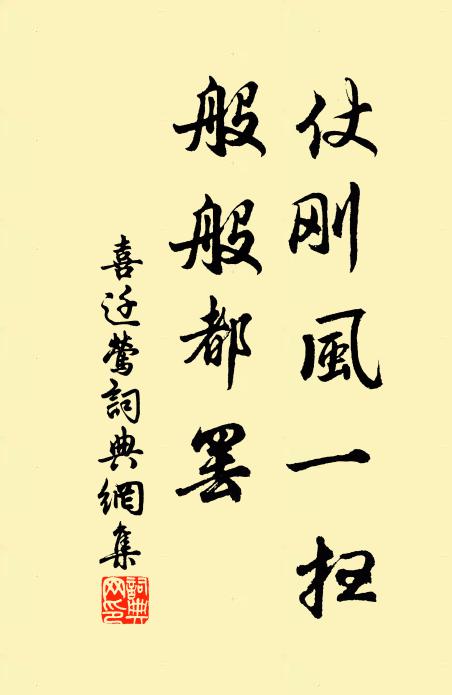 仗刚風一扫
般般都罢
喜迁鶯詞典網集
詞典网印